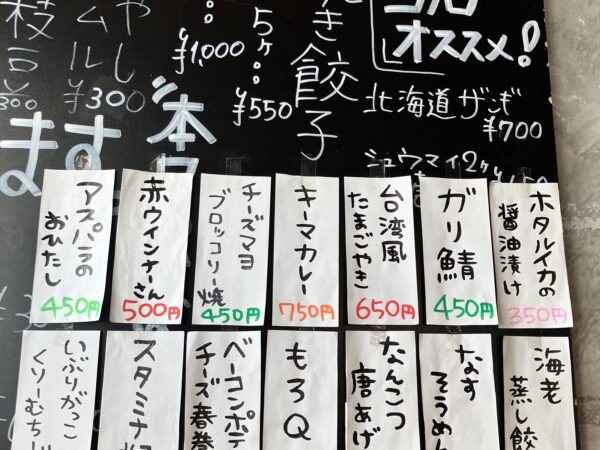 オススメ!
北海道ザンギ
¥700
シュウマイ2ケ
餃子
5ケ
¥550
¥1,000
ムル
やし
¥300
枝豆
ます
本
ホタルイカの
醤油漬け
350円
ガリ鯖
450円
台湾風
たまごやき
650円
キーマカレー
750円
チーズマヨ
ブロッコリー焼
450円
赤ウインナーさん
500円
アスパラの
おひたし
450円
海老
蒸し餃
なす
そうめん
なんこつ
唐あげ
もろQ
ベーコンポテ
チーズ春巻
スタミナ
いぶりがっこ
くりーむち